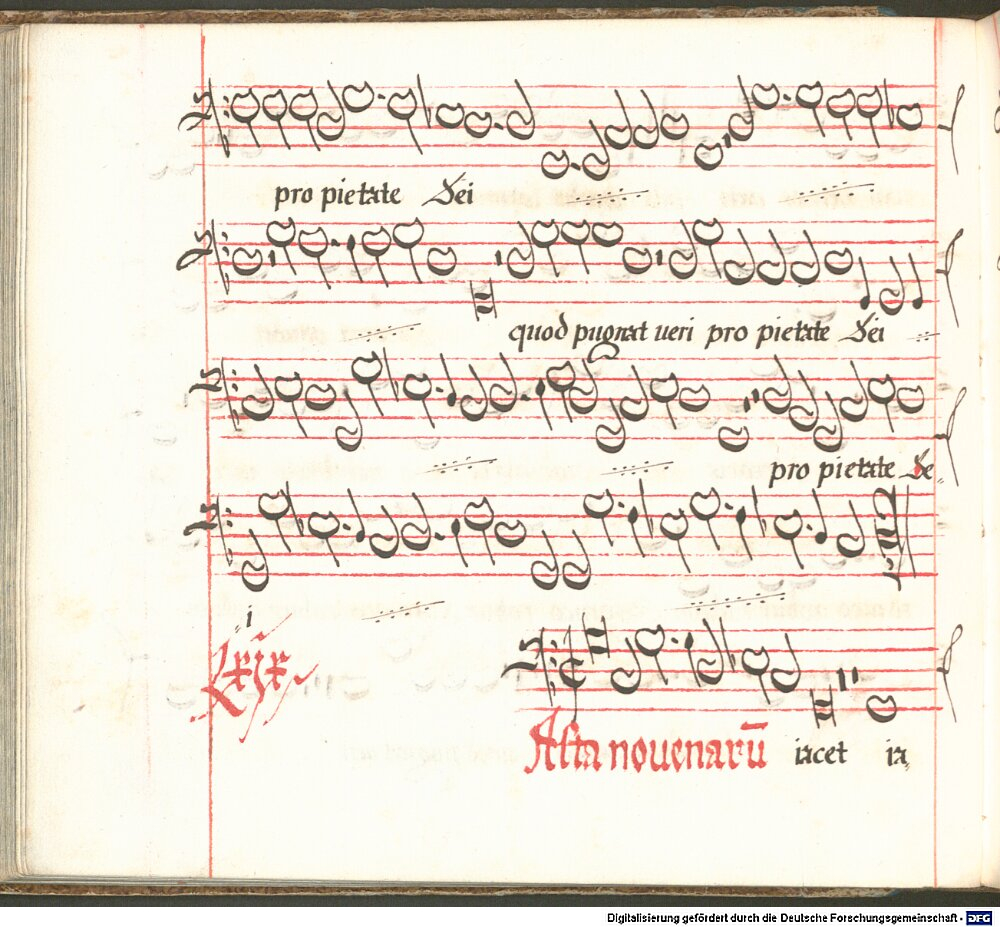 pro pietate Dei
quod pugnat ueri pro pietate Dei
pro pietate De„
„i
Lxix
Asta nouenarū iacet ia„
Digitalisierung gefördert durch die Deutsche Forschungsgemeinschaft - DFG